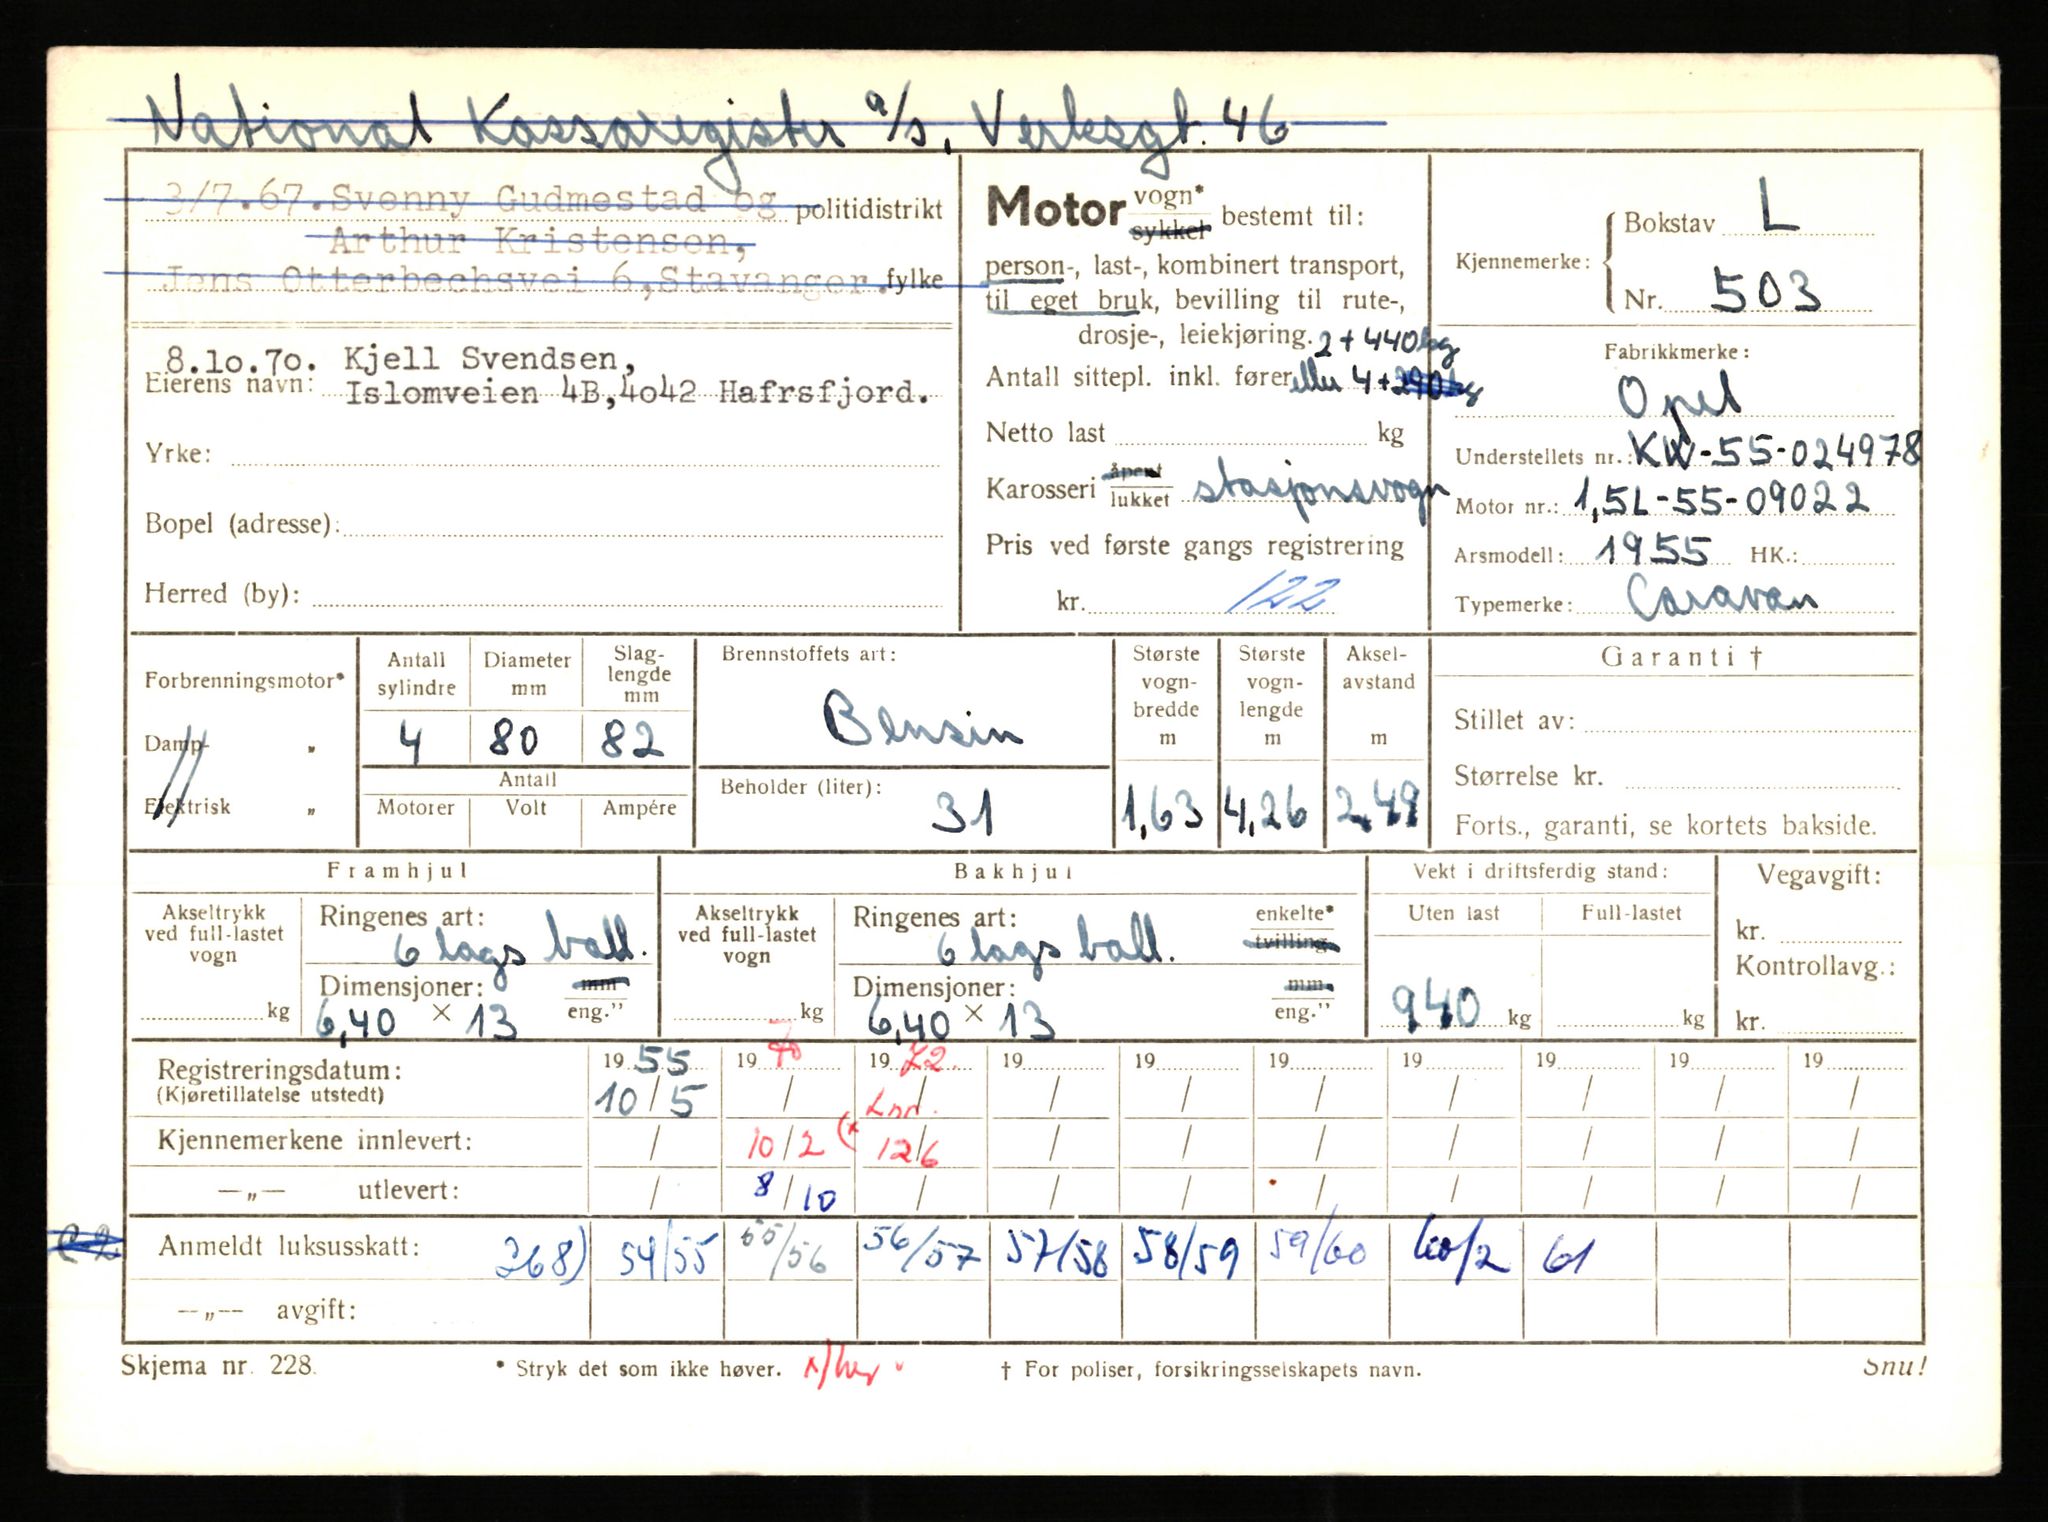 National Kassaregister a/s, Verksgt. 46
3/7.67. Svenny Gudmestad og politidistrikt
Arthur Kristensen,
Jens Otterbechsvei 6, Stavanger. fylke
8.10.70. Kjell Svendsen,
Eierens navn: Islomveien 4B, 4042 Hafrsfjord.
Yrke:
Bopel (adresse):
Herred (by):
Motor vogn* sykkel bestemt til:
person-, last-, kombinert transport,
til eget bruk, bevilling til rute-,
drosje-, leiekjøring. 2 + 440 kg
Antall sittepl. inkl. fører eller 4 + 290 kg
Netto last kg
Karosseri åpent lukket stasjonsvogn
Pris ved første gangs registrering
kr. 122
Kjennemerke: Bokstav L
Nr. 503
Fabrikkmerke:
Opel
Understellets nr.: KW-55-024978
Motor nr.: 1,5L-55-09022
Arsmodell: 1955 HK.:
Typemerke: Caravan
Forbrenningsmotor*
Damp- „
Elektrisk „
Antall sylindre Diameter mm Slaglengde mm
4 80 82
Antall
Motorer Volt Ampére
Brennstoffets art:
Bensin
Beholder (liter):
31
Største vogn-bredde m Største vogn-lengde m Aksel-avstand m
1,63 4,26 2,49
Garanti †
Stillet av:
Størrelse kr.
Forts., garanti, se kortets bakside.
Framhjul
Akseltrykk ved full-lastet vogn kg
Ringenes art:
6 lags ball.
Dimensjoner: mm eng."
6,40 × 13
Bakhjul
Akseltrykk ved full-lastet vogn kg
Ringenes art: enkelte* tvilling
6 lags ball.
Dimensjoner: mm eng."
6,40 × 13
Vekt i driftsferdig stand:
Uten last Full-lastet
940 kg kg
Vegavgift:
kr.
Kontrollavg.:
kr.
Registreringsdatum: 19 55 19 70 19 72. 19 19 19 19 19 19 19
(Kjøretillatelse utstedt) 10/5 / Lnr. / / / / / / /
Kjennemerkene innlevert: / 10/2 (* 12/6 / / / / / / /
—„— utlevert: / 8/10 / / / / / / / /
Anmeldt luksusskatt: 268) 54/55 55/56 56/57 57/58 58/59 59/60 60/2 61
—„— avgift:
Skjema nr. 228. * Stryk det som ikke høver. † For poliser, forsikringsselskapets navn. Snu!